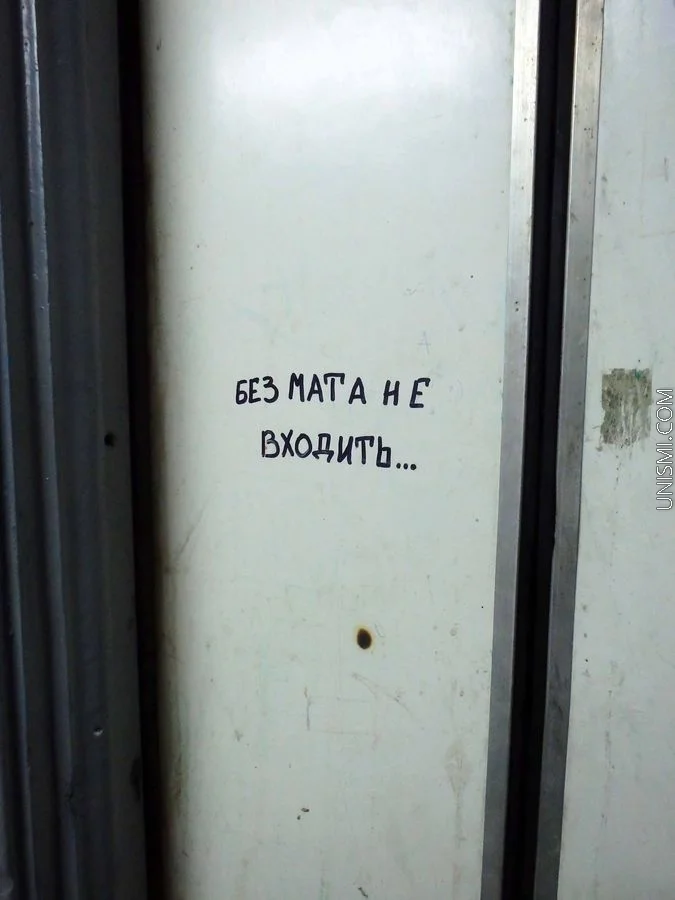 БЕЗ МАТА НЕ
ВХОДИТЬ...
UNISMI.COM